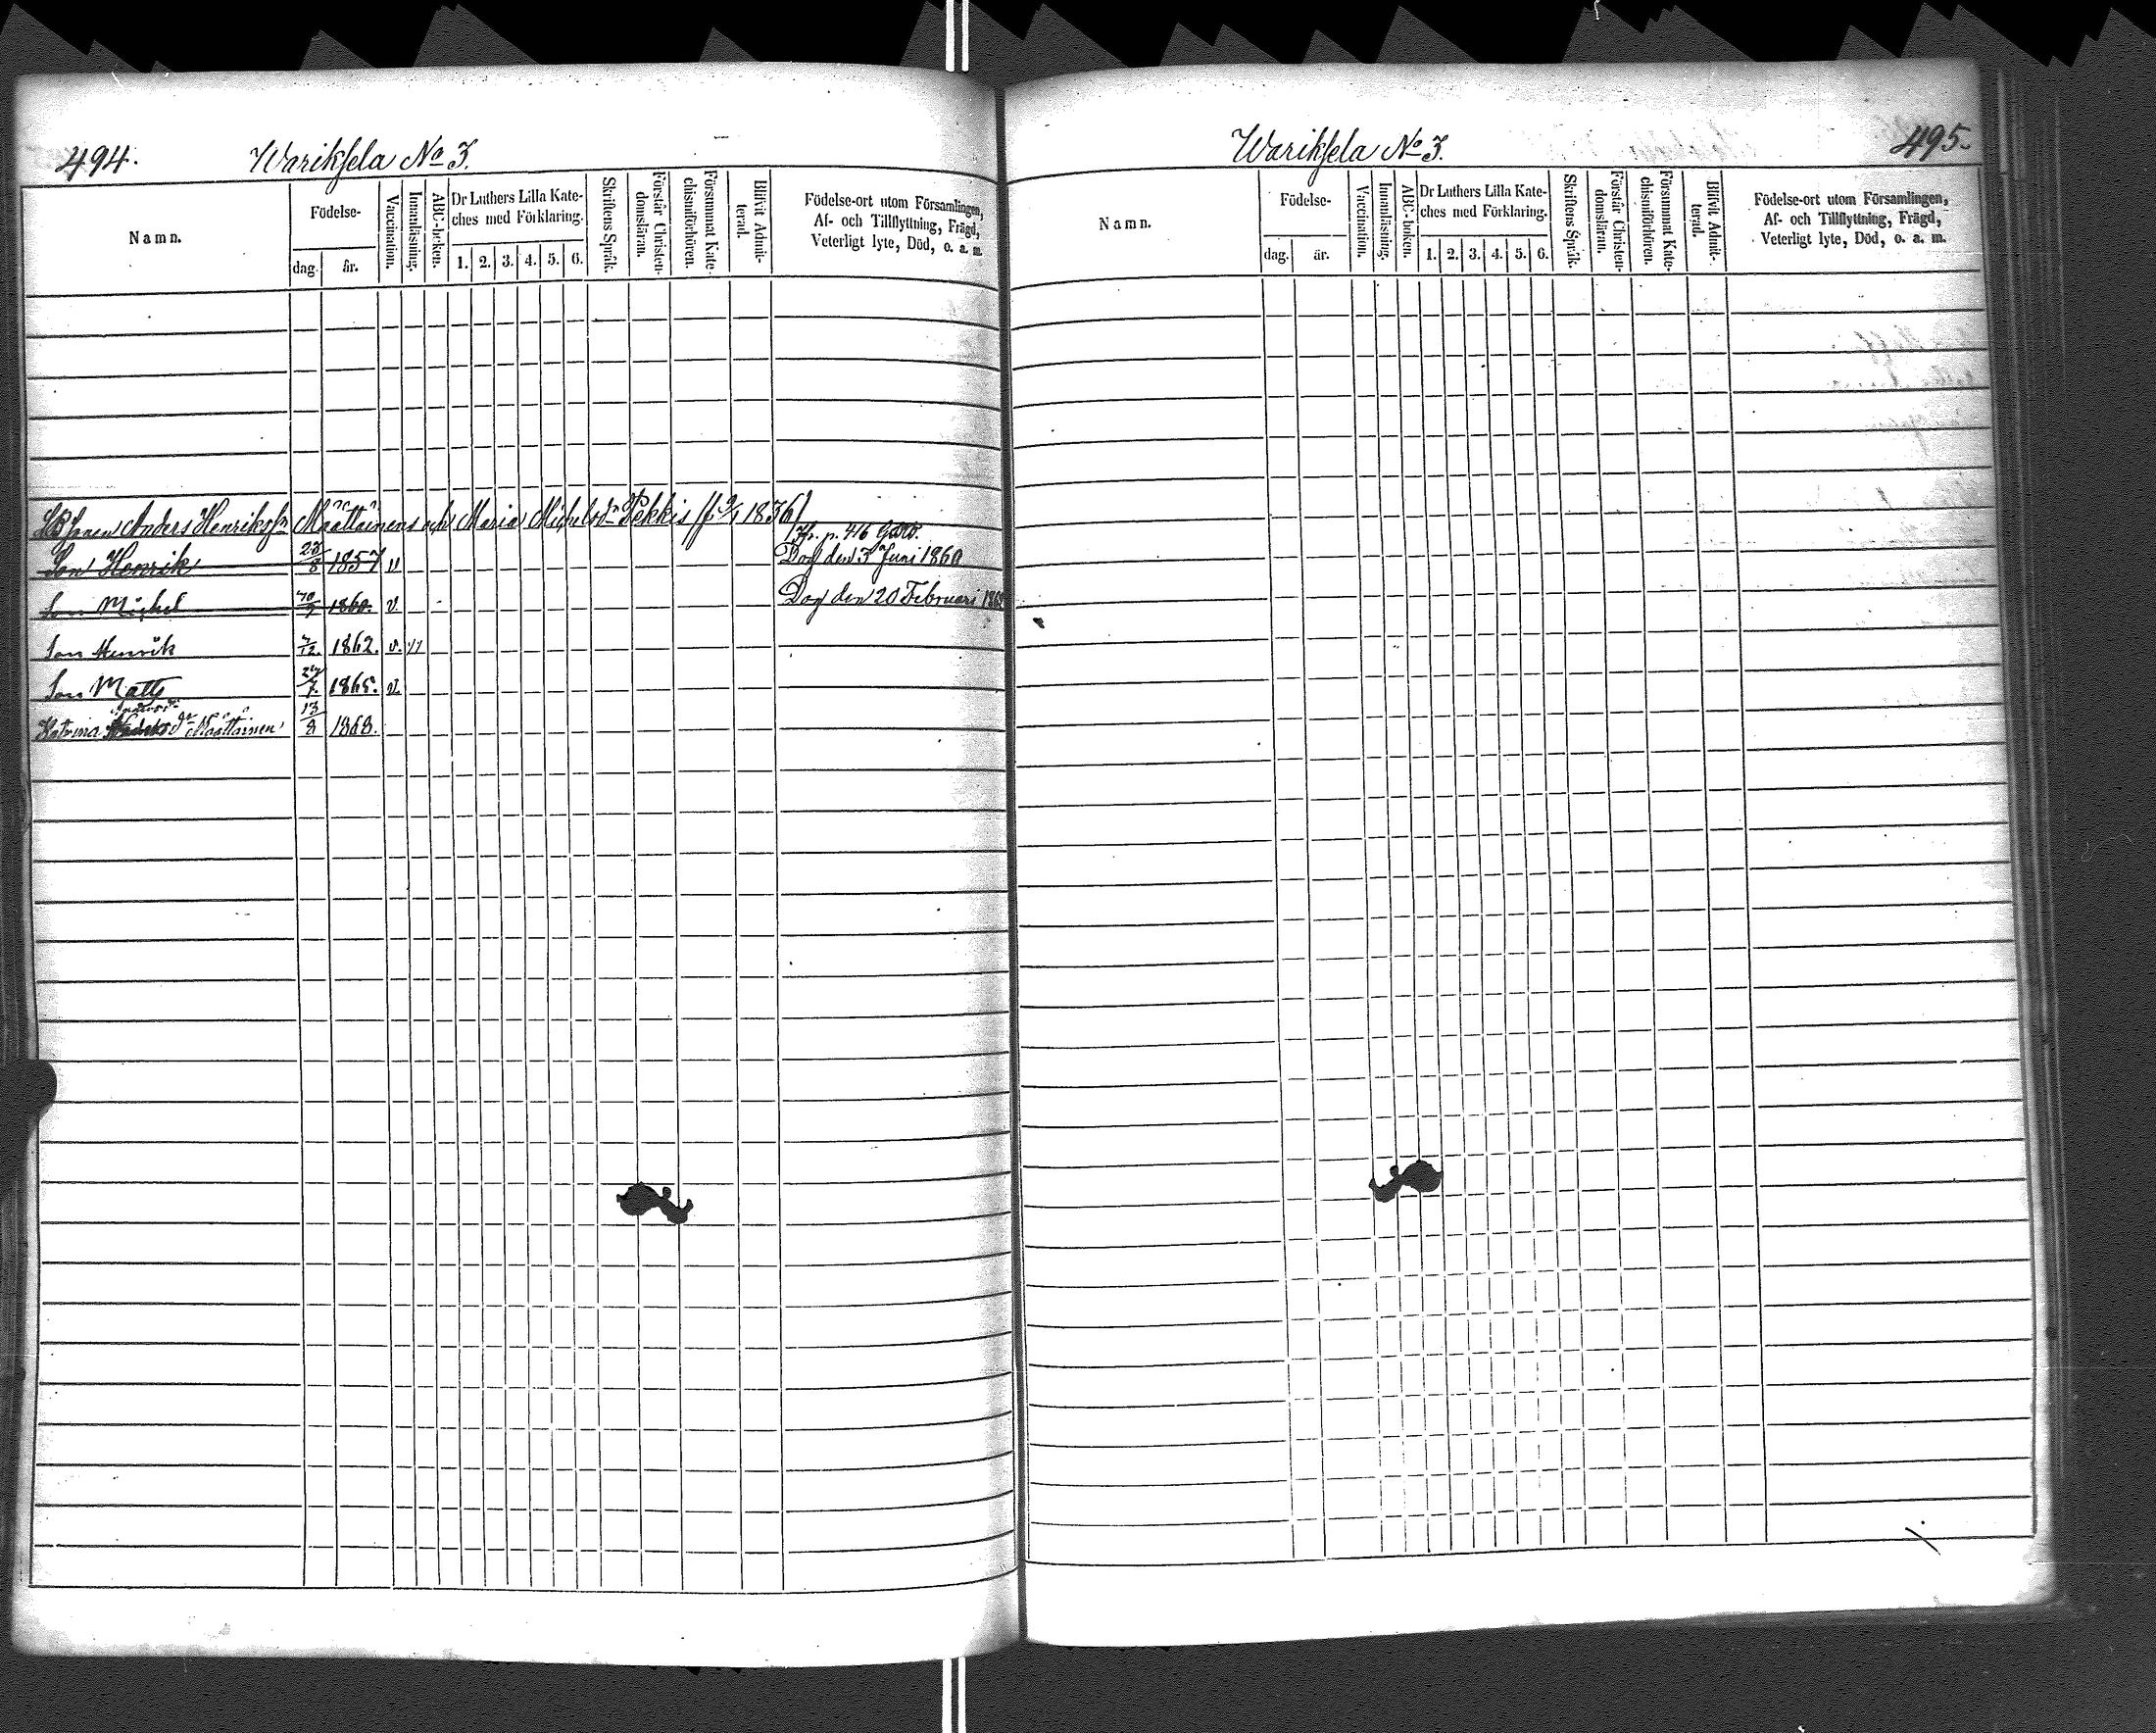 494.
Wariksela No 3.
Namn.
Födelse-
dag.
år.
Vaccination.
Innanläsning.
ABC-boken.
Dr Luthers Lilla Kate-
ches med Förklaring.
1. 2. 3. 4. 5. 6.
Skriftens Språk.
Förstår Christen-
domsläran.
Försummat Kate-
chismiförhören.
Blifvit Admit-
terad.
Födelse-ort utom Församlingen,
Af- och Tillflyttning, Frägd,
Veterligt lyte, Död, o. a. m.
Anders Henrikss:n Määttäinens och Maria Michelsd:r Pekkis (f. 9/1 1836)
p. 416
Son Henrik 23/8 1857 v Dog den 3 Juni 1860
Son Michel 1860. v. Dog den 20 Februari
Son Henrik 7/12 1862. v.
Son Matts 24/7. 1865. v.
Andersd:r
Katrina d:r Määttäinen 13/8 1868.
Wariksela No 3.
495.
Namn.
Födelse-
dag.
år.
Vaccination.
Innanläsning.
ABC-boken.
Dr Luthers Lilla Kate-
ches med Förklaring.
1. 2. 3. 4. 5. 6.
Skriftens Språk.
Förstår Christen-
domsläran.
Försummat Kate-
chismiförhören.
Blifvit Admit-
terad.
Födelse-ort utom Församlingen,
Af- och Tillflyttning, Frägd,
Veterligt lyte, Död, o. a. m.